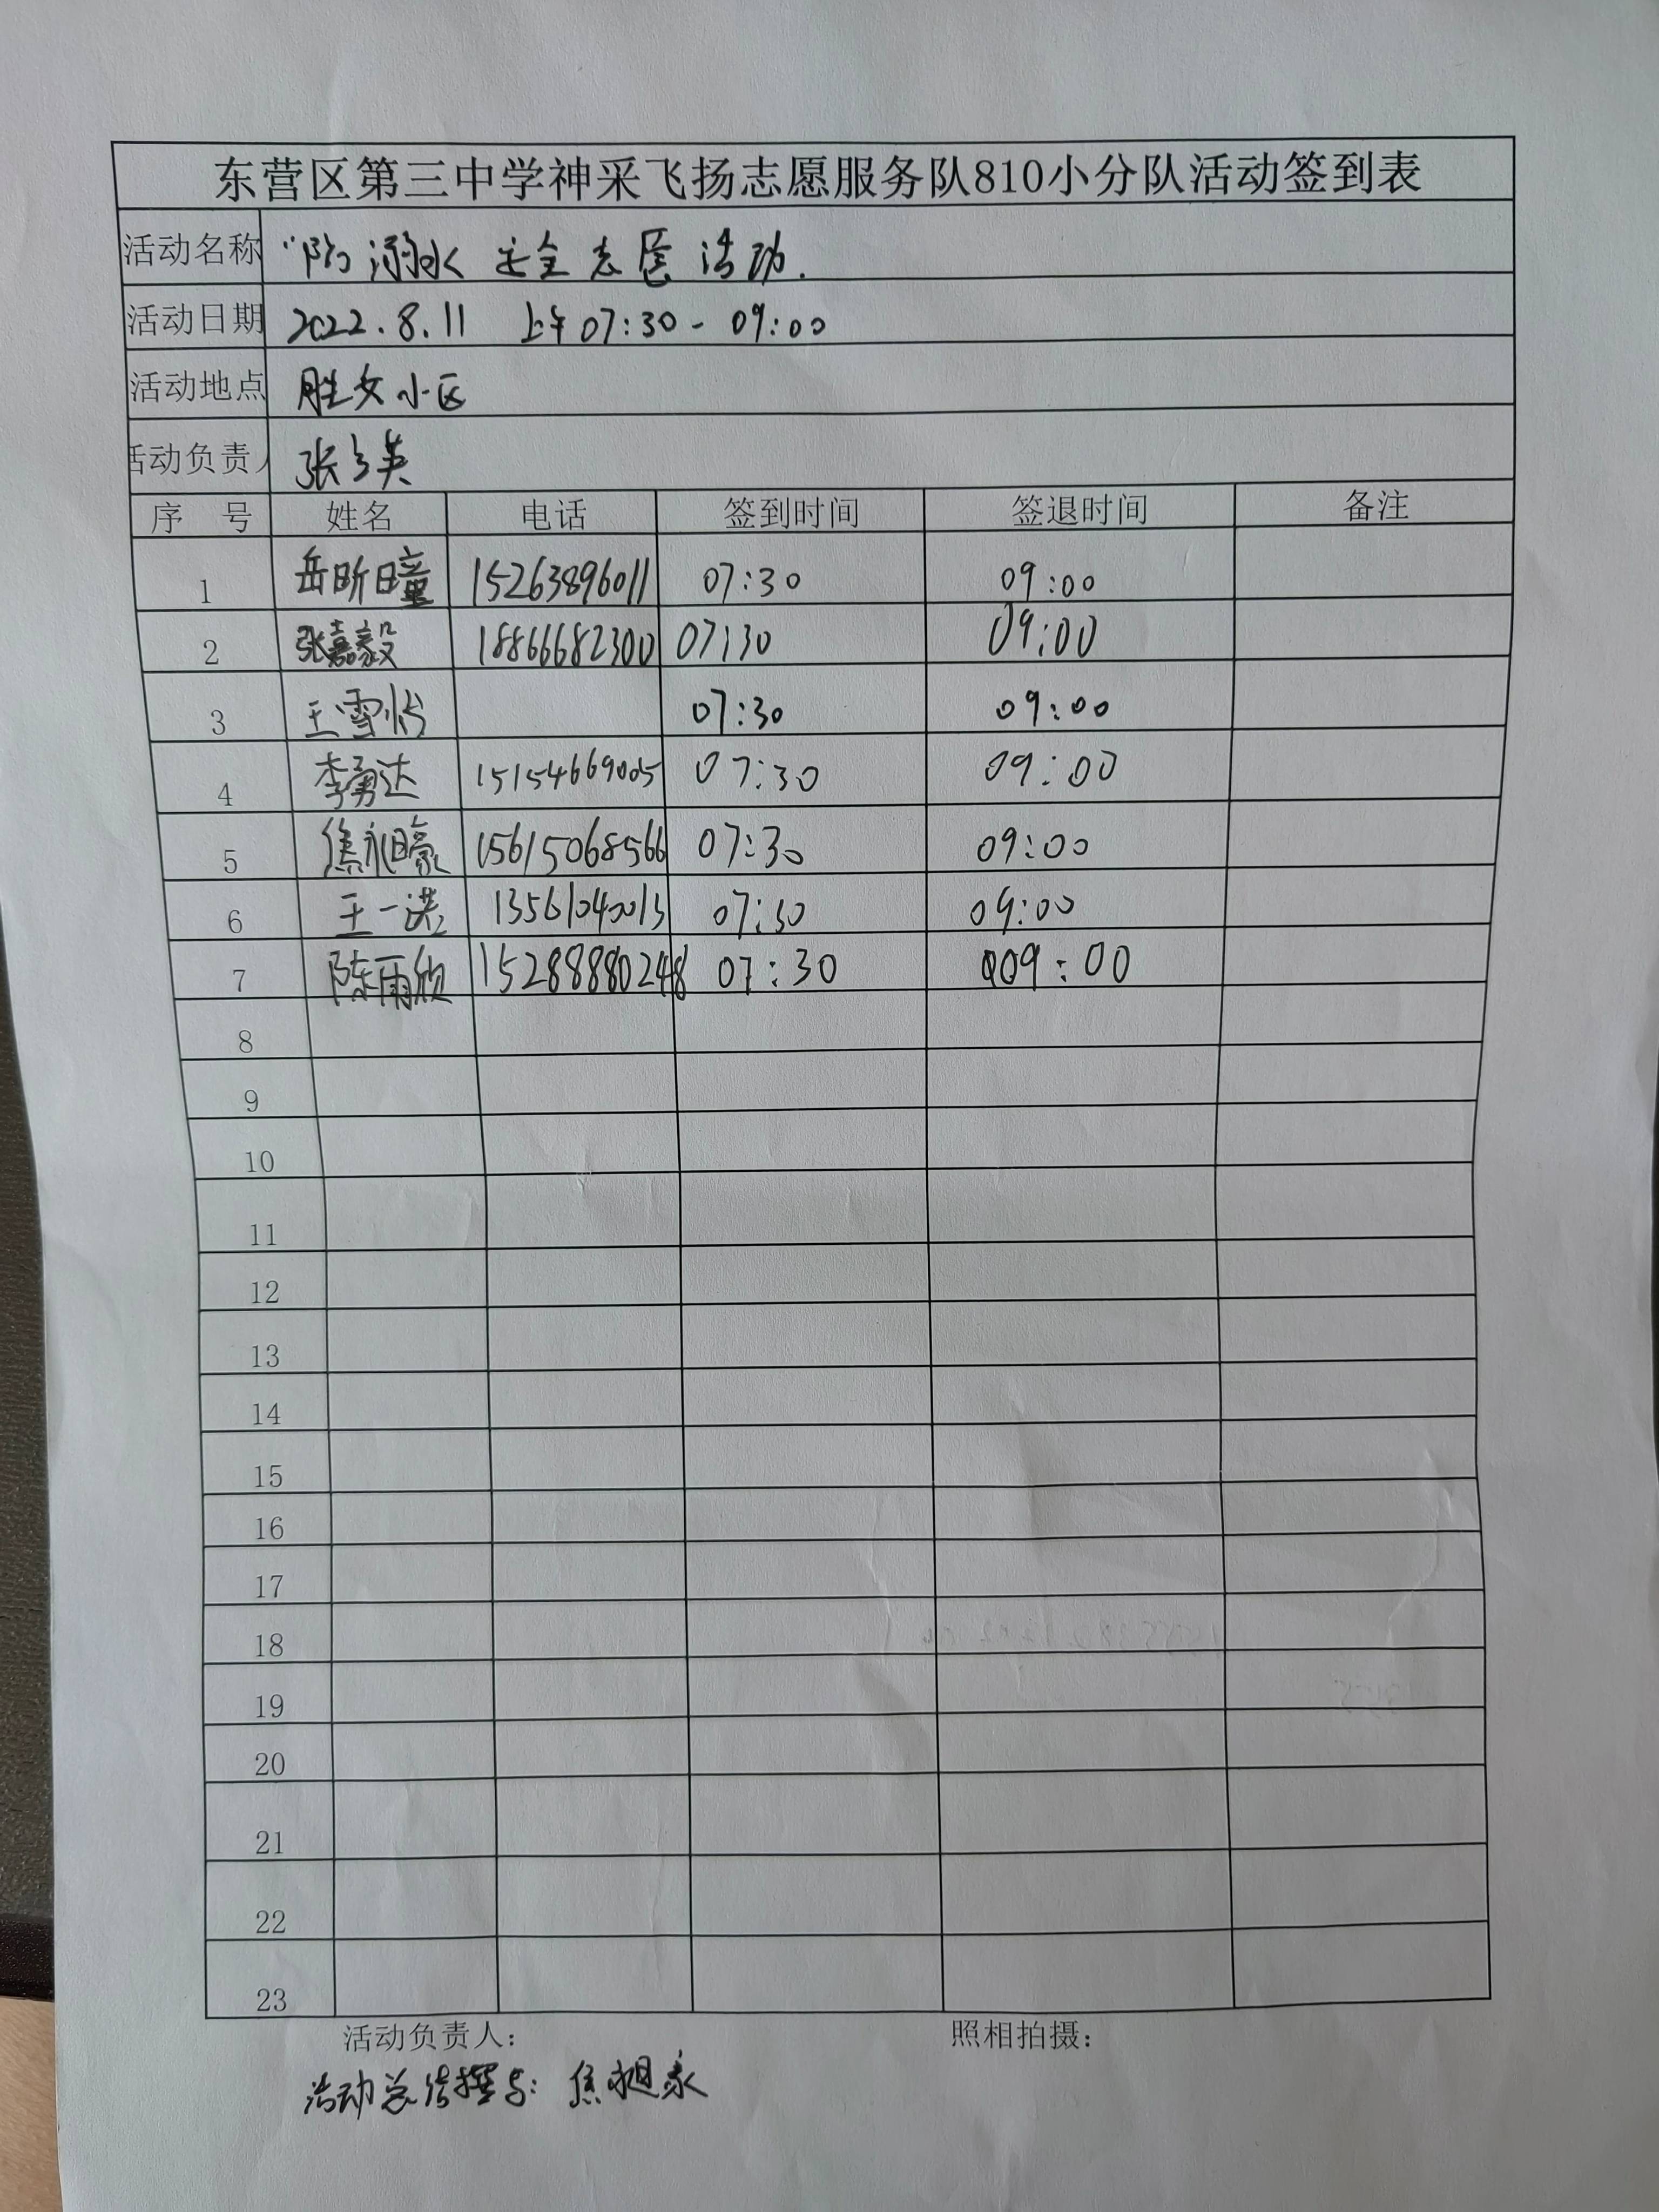 东营区第三中学神采飞扬志愿服务队810小分队活动签到表
活动名称 "防溺水 安全志愿活动.
活动日期 2022.8.11 上午07:30-09:00
活动地点 胜女小区
活动负责人 张英
序 号 姓名 电话 签到时间 签退时间 备注
1 岳昕曈 15263896011 07:30 09:00
2 张嘉毅 18866682300 07:30 09:00
3 王雪怡 07:30 09:00
4 李勇达 15154669005 07:30 09:00
5 焦 15615068566 07:30 09:00
6 王一 13561040013 07:30 09:00
7 陈雨欣 15288880248 07:30 09:00
8
9
10
11
12
13
14
15
16
17
18
19
20
21
22
23
活动负责人: 照相拍摄:
活动总结撰写: 焦